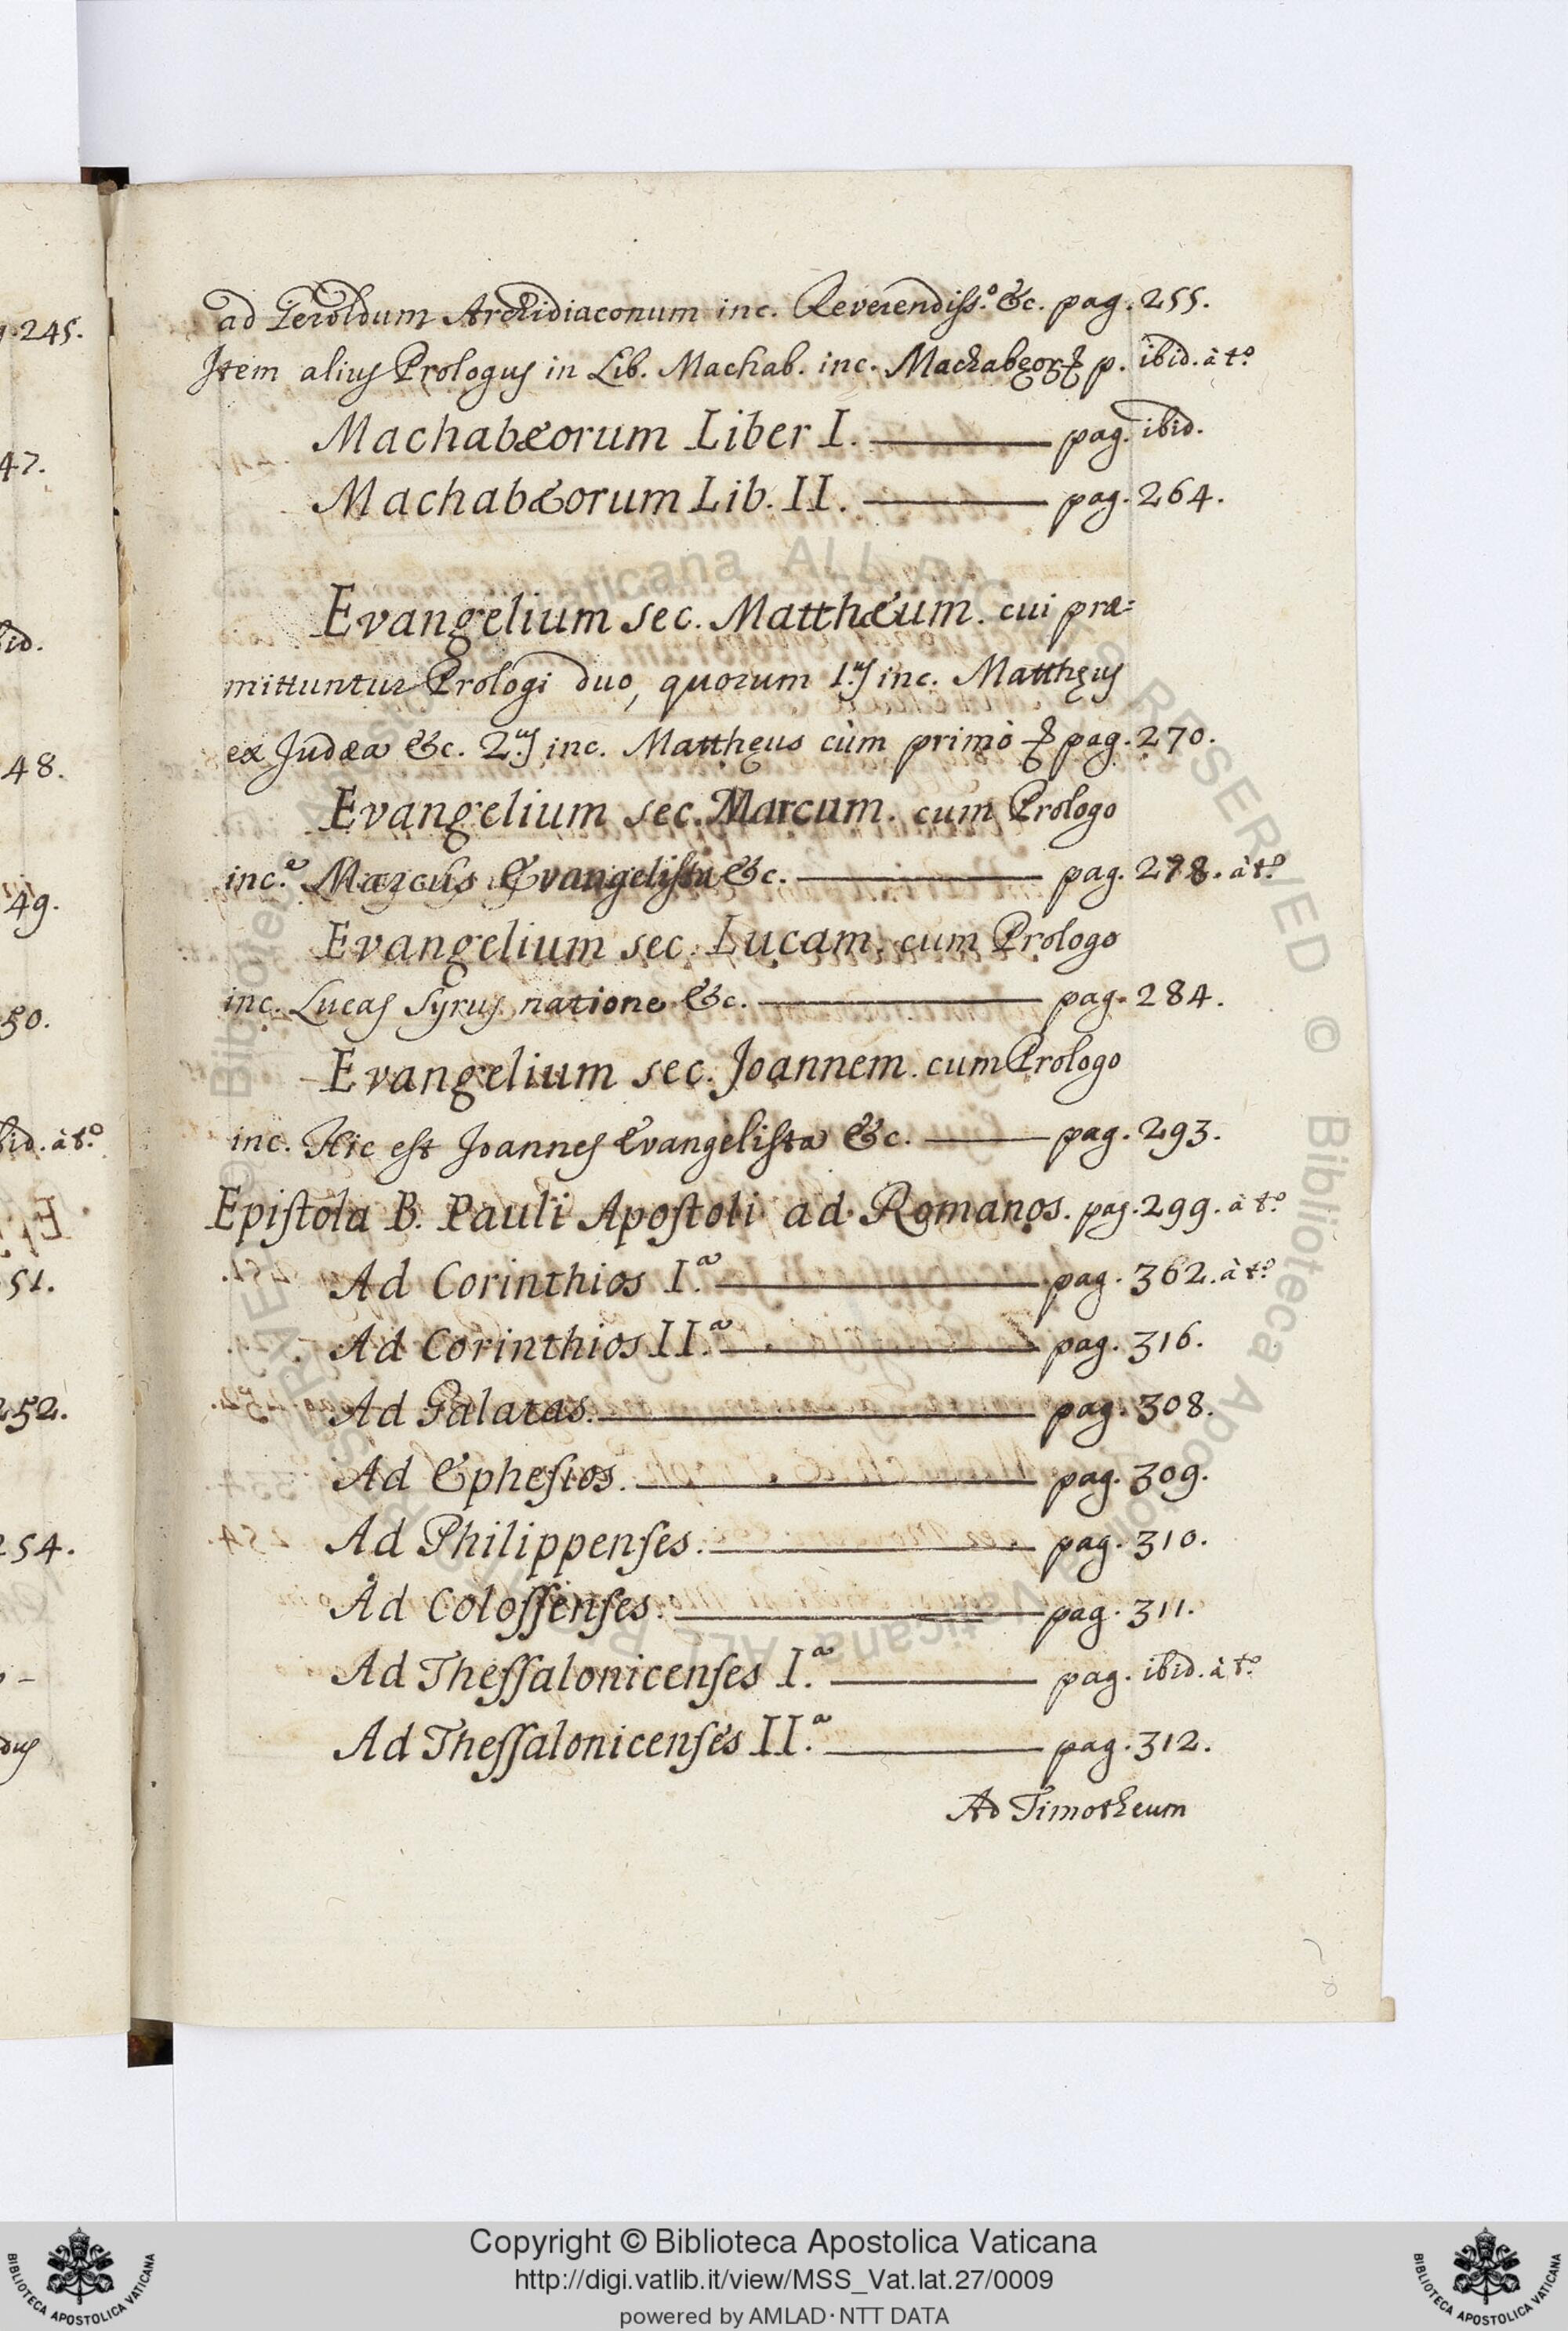 ad Geroldum Archidiaconum inc. Reverendiss.º &c. pag. 255.
Item alius Prologus in Lib. Machab. inc. Machabęoꝝ & p. ibid. à tº
Machabæorum Liber I. pag. ibid.
Machabæorum Lib. II. pag. 264.
Evangelium sec. Matthæum. cui præ=
mittuntur Prologi duo, quorum 1.us inc. Matthęus
ex Judæa &c. 2.us inc. Matthęus cùm primò & pag. 270.
Evangelium sec. Marcum. cum Prologo
inc.e Marcus Evangelista &c. pag. 278. à tº
Evangelium sec. Lucam. cum Prologo
inc. Lucas Syrus natione &c. pag. 284.
Evangelium sec. Joannem. cum Prologo
inc. Hic est Joannes Evangelista &c. pag. 293.
Epiſtola B. Pauli Apoſtoli ad Romanos. pag. 299. à tº
Ad Corinthios I.a pag. 362. à tº
Ad Corinthios II.a pag. 316.
Ad Galatas. pag. 308.
Ad Epheſios. pag. 309.
Ad Philippenſes. pag. 310.
Ad Coloſſenſes. pag. 311.
Ad Theſſalonicenſes I.a pag. ibid. à tº
Ad Theſſalonicenſes II.a pag. 312.
Ad Timotheum
Copyright © Biblioteca Apostolica Vaticana
http://digi.vatlib.it/view/MSS_Vat.lat.27/0009
powered by AMLAD · NTT DATA
BIBLIOTECA APOSTOLICA VATICANA
BIBLIOTECA APOSTOLICA VATICANA